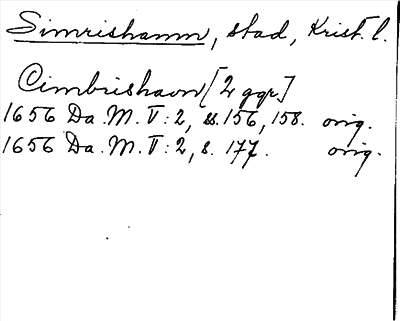 Simrishamn, stad, Krist. l.
Cimbrishavn [2 ggr]
1656 Da. M. V: 2, ss. 156, 158. orig.
1656 Da. M. V: 2, s. 177. orig.